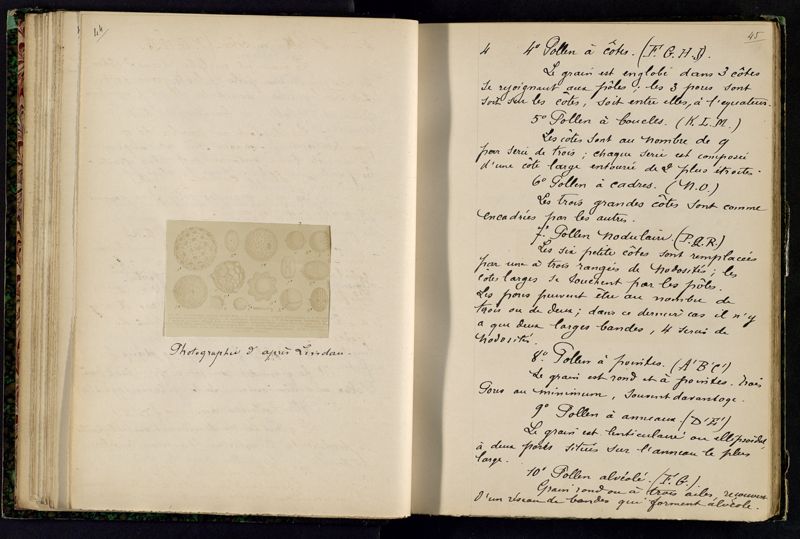 44
Photographie d'après Lindau.
45
4 4º Pollen à côtes. (F. G. H. I).
Le grain est englobé dans 3 côtes
se rejoignant aux pôles ; les 3 pores sont
soit sur les côtes, soit entre elles, à l'équateur.
5º Pollen à boucles. (K. L. M.)
Les côtes sont au nombre de 9
par serie de trois ; chaque serie est composée
d'une côte large entourée de 2 plus étroites.
6º Pollen à cadres. (N. O.)
Les trois grandes côtes sont comme
encadrées par les autres.
7º. Pollen nodulaire (P. Q. R.)
Les six petite côtes sont remplacées
par une à trois rangées de nodosités ; les
côtes larges se touchent par les pôles.
Les pores peuvent être au nombre de
trois ou de deux ; dans ce dernier cas il n'y
a que deux larges bandes, 4 series de
nodosité.
8º. Pollen à pointes. (A' B' C')
Le grain est rond et à pointes. Trois
pores au minimum, souvent davantage.
9º Pollen à anneaux. (D' E')
Le grain est lenticulaire ou ellipsoïdal,
à deux pores situés sur l'anneau le plus
large.
10º Pollen alvéolé. (F. G.).
Grain rond ou à trois ailes, recouvert
d'un réseau de bandes qui forment alvéole.